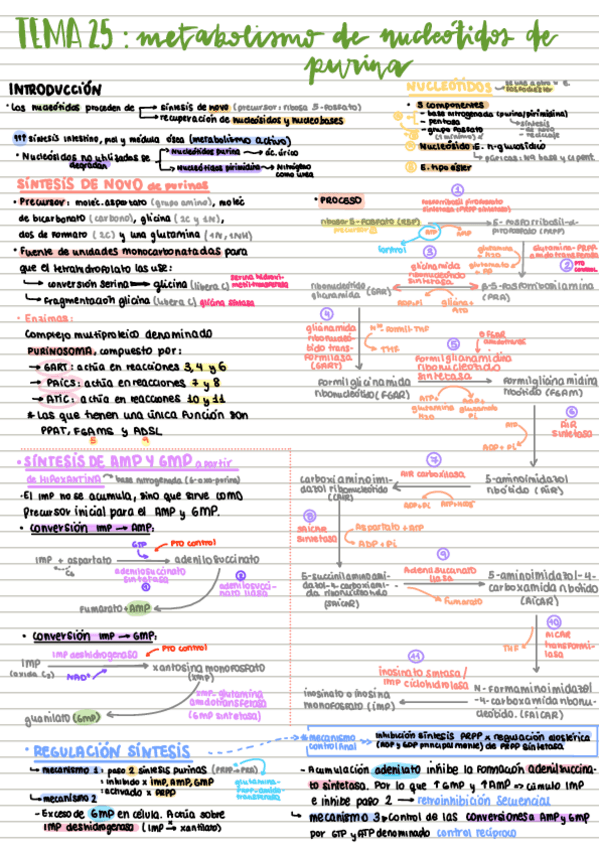 TEMA 25: metabolismo de nucleótidos de
purina
INTRODUCCIÓN
• Los nucleótidos proceden de → síntesis de novo (precursor: ribosa 5-fosfato)
→ recuperación de nucleósidos y nucleobases
síntesis intestino, piel y médula ósea (metabolismo activo)
• Nucleótidos no utilizados se degradan → Nucleótidos purina → ác. úrico
→ Nucleótidos pirimidina → Nitrógeno como urea
NUCLEÓTIDOS
• 3 componentes
- base nitrogenada (purina/pirimidina)
- pentosa
- grupo fosfato
(1 mínimo)
→ síntesis
- de novo
- reciclaje
Nucleósido: E. n-glucosídico
E. tipo éster
SÍNTESIS DE NOVO de purinas
• Precursor: moléc. aspartato (grupo amino), moléc
de bicarbonato (carbono), glicina (2C y 1N),
dos de formato (2C) y una glutamina (1N, 1NH)
• Fuente de unidades monocarbonatadas para
que el tetrahidrofolato las use:
→ conversión serina → glicina (libera C) serina hidroximetiltransferasa
→ Fragmentación glicina (libera C) glicina sintasa
• Enzimas:
Complejo multiproteico denominado
PURINOSOMA, compuesto por:
→ GART: actúa en reacciones 3, 4 y 6
→ PAICS: actúa en reacciones 7 y 8
→ ATIC: actúa en reacciones 10 y 11
* Las que tienen una única función son
PPAT, FGAMS y ADSL
5 9
• PROCESO
1
ribosa 5-fosfato (R5P)
precursor
ATP AMP
control
5-fosforribosil-α-
pirofosfato (PRPP)
2 PTO CONTROL
Glutamina-PRPP-
amidotransferasa
glutamina
H2O
glutamato
PPi
β-5-fosforribosilamina
(PRA)
3
glicinamida
ribonucleótido
sintetasa
ADP+Pi
glicina +
ATP
ribonucleótido
glicinamida (GAR)
4
glicinamida
ribonucleótido
transformilasa
(GART)
N10-formil THF
THF
formilglicinamida
ribonucleótido (FGAR)
5
formilglicinamidina
ribonucleótido
sintetasa
ATP+
glutamina
ADP+
glutamato
formilglicinamidina
ribótido (FGAM)
6
AIR
sintetasa
ATP
ADP + Pi
5-aminoimidazol
ribótido (AIR)
7
AIR carboxilasa
ADP+Pi
carboxiaminoimidazol
ribonucleótido
(CAIR)
8
SAICAR
sintetasa
Aspartato + ATP
ADP + Pi
5-succinilaminoimidazol-4-carboxiamida
ribonucleótido
(SAICAR)
9
Adenilsuccinato
liasa
Fumarato
5-aminoimidazol-4-
carboxamida ribótido
(AICAR)
10
AICAR
transformilasa
THF
N-formaminoimidazol
-4-carboxamida ribonucleótido.
(FAICAR)
11
inosinato sintasa /
IMP ciclohidrolasa
inosinato o inosina
monofosfato (IMP)
• SÍNTESIS DE AMP Y GMP a partir
de HIPOXANTINA → base nitrogenada (6-oxo-purina)
• El IMP no se acumula, sino que sirve como
precursor inicial para el AMP y GMP.
• Conversión IMP → AMP:
GTP PTO control
IMP + aspartato → adenilosuccinato
adenilosuccinato
sintetasa
1
2
adenilosuccinato liasa
fumarato + AMP
• Conversión IMP → GMP:
IMP deshidrogenasa PTO control
IMP → xantosina monofosfato
(XMP)
NAD+
XMP-glutamina
amidotransferasa
(GMP sintetasa)
guanilato (GMP)
• REGULACIÓN SÍNTESIS
→ mecanismo 1: paso 2 síntesis purinas (PRPP→PRA)
: inhibido x IMP, AMP, GMP
: activado x PRPP
glutamina-PRPP-amidotransferasa
→ mecanismo 2
- Exceso de GMP en célula. Actúa sobre
IMP deshidrogenasa (IMP → xantilato)
* mecanismo
control final → inhibición síntesis PRPP x regulación alostérica
(ADP y GDP principalmente) de PRPP sintetasa
- Acumulación adenilato inhibe la formación adenilsuccinato
sintetasa. Por lo que ↑GMP y ↑AMP ⇒ cúmulo IMP
e inhibe paso 2 → retroinhibición secuencial
→ mecanismo 3: control de las conversiones a AMP y GMP
por GTP y ATP denominado control recíproco